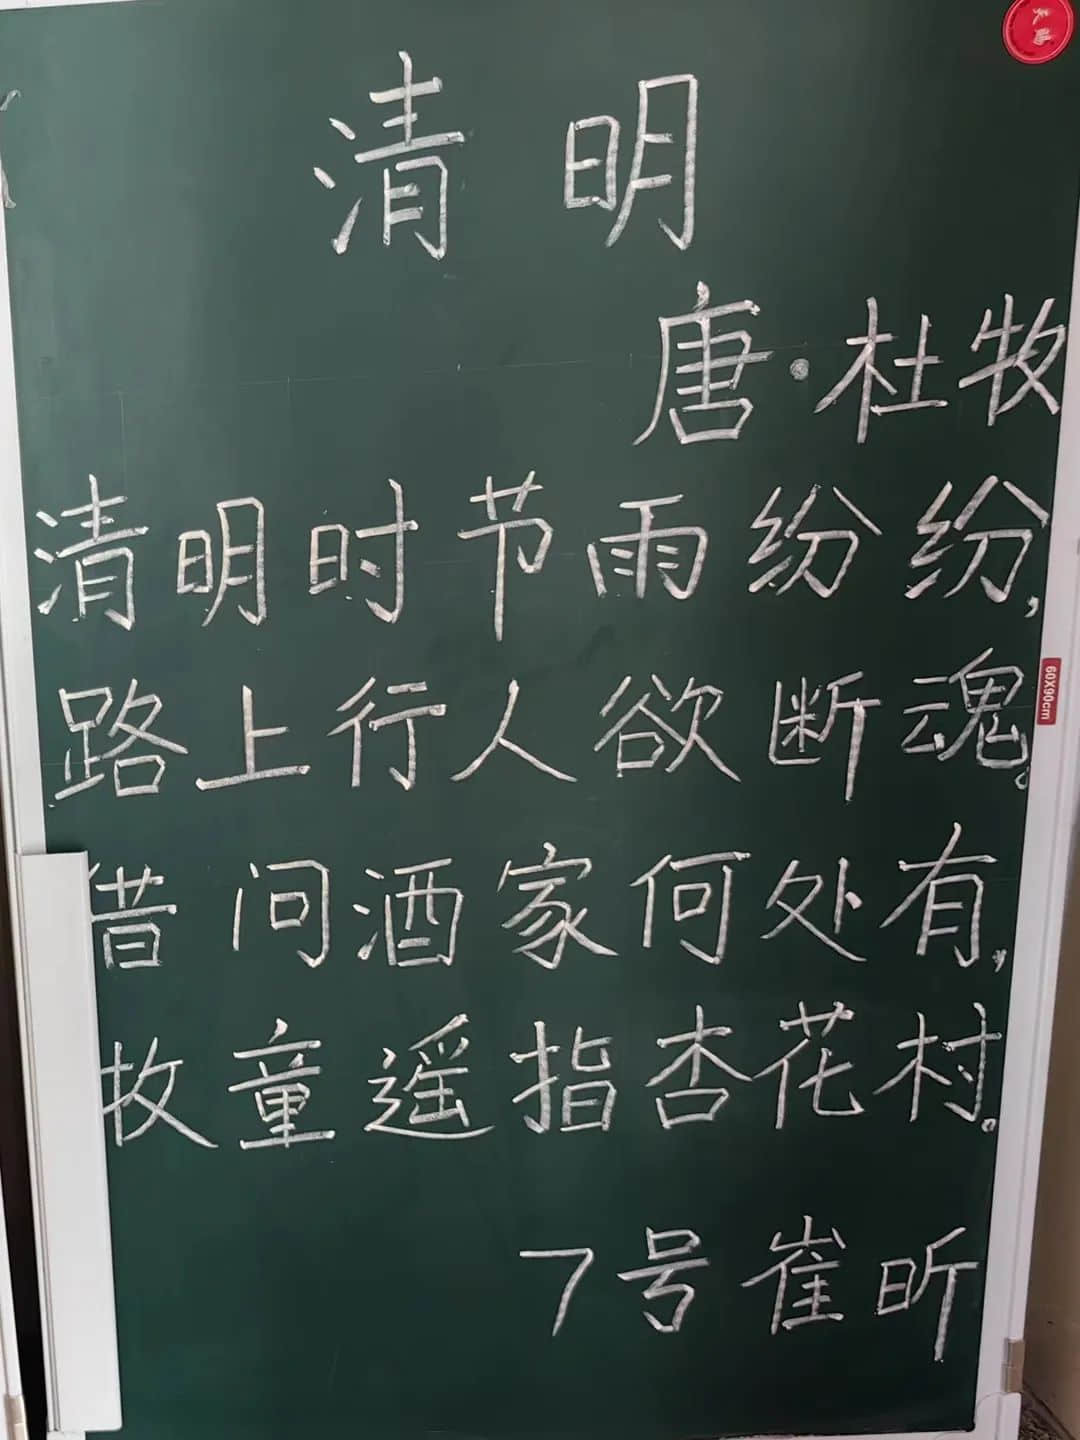 清明
唐·杜牧
清明时节雨纷纷,
路上行人欲断魂。
借问酒家何处有,
牧童遥指杏花村。
7号崔昕
60X90cm